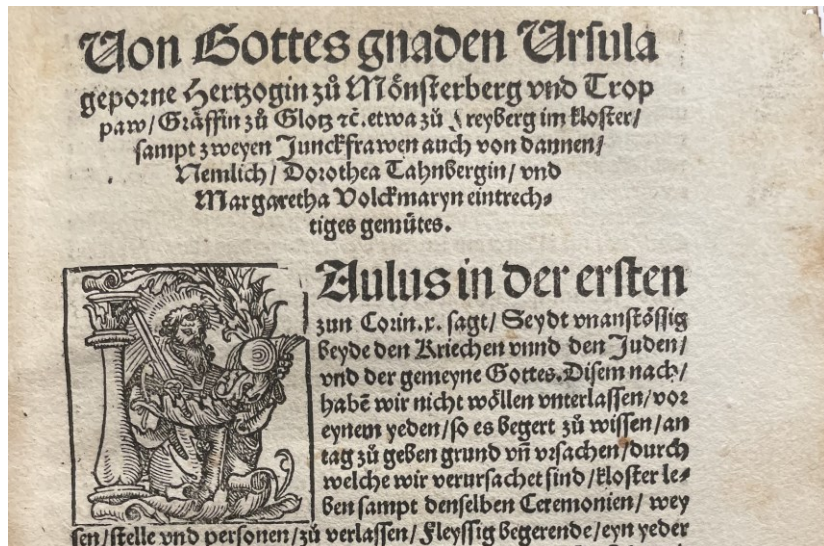 Von Gottes gnaden Ursula
geporne Hertzogin zů Mönsterberg vnd Trop
paw/ Gräffin zů Glotz ⁊c̄. etwa zů Freyberg im kloster/
sampt zweyen Junckfrawen auch von dannen/
Nemlich/ Dorothea Tahnbergin/ vnd
Margaretha Volckmaryn eintrech⸗
tiges gemůtes.
Aulus in der ersten
zun Corin. x. sagt/ Seydt vnanstössig
beyde den Kriechen vnnd den Juden/
vnd der gemeyne Gottes. Disem nach/
habē wir nicht wöllen vnterlassen/ vor
eynem yeden/ so es begert zů wissen/ an
tag zů geben grund vn̄ vrsachen/ durch
welche wir verursachet sind/ kloster le⸗
ben sampt denselben Ceremonien/ wey
sen/ stelle vnd personen/ zů verlassen/ Fleyssig begerende/ eyn yeder